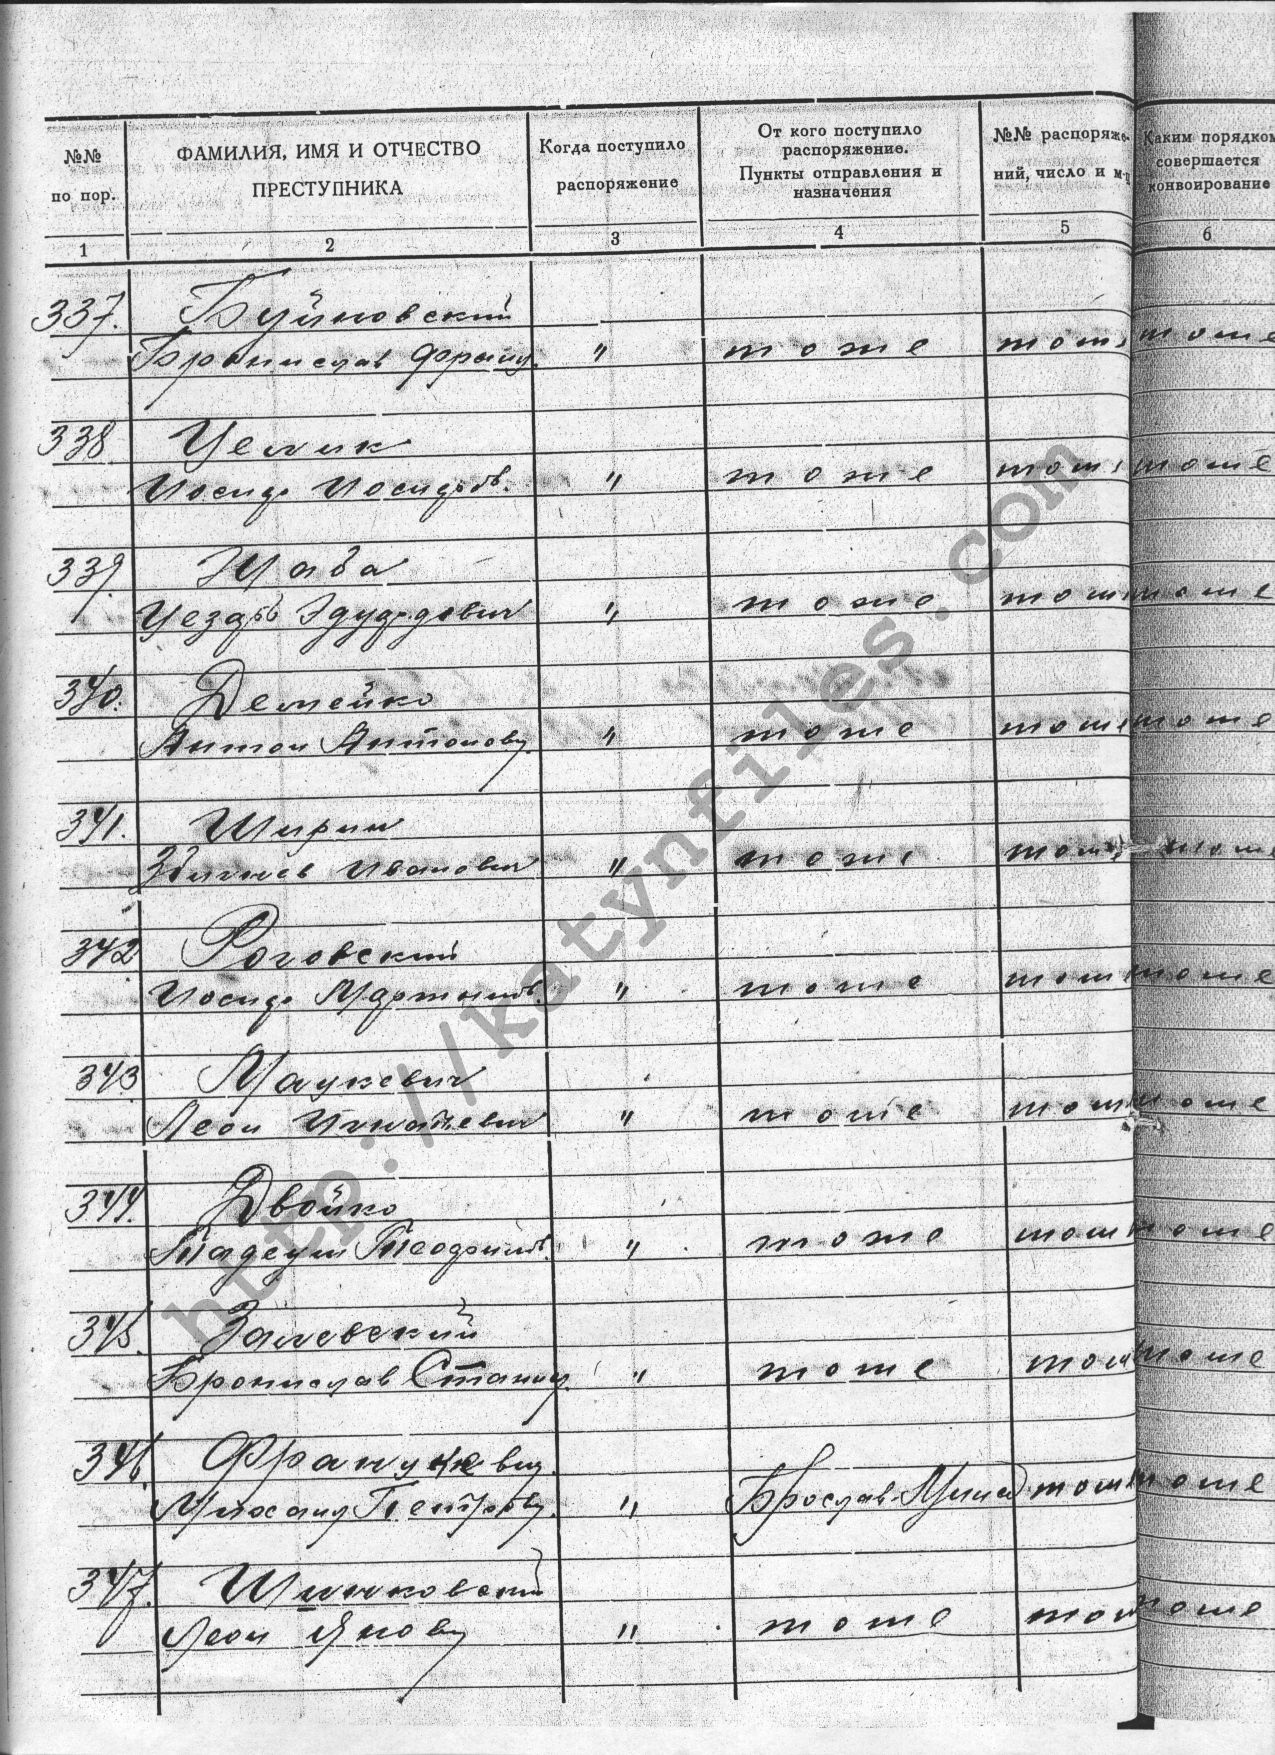 №№ по пор.
ФАМИЛИЯ, ИМЯ И ОТЧЕСТВО ПРЕСТУПНИКА
Когда поступило распоряжение
От кого поступило распоряжение. Пункты отправления и назначения
№№ распоряже- ний, число и м-ц
Каким порядком совершается конвоирование
1 2 3 4 5 6
337. Буйновский
Бронислав Франц. " тоже тоже тоже
338 Целик
Иосиф Иосифов. " тоже тоже тоже
339.
Цезарь Эдуардович " тоже тоже тоже
340. Демейко
Антон Антонович " тоже тоже тоже
341. Ширин
Збигнев Иванович " тоже тоже тоже
342 Роговский
Иосиф Мартынов. " тоже тоже тоже
343 Мацкевич
Леон Игнатьевич " тоже тоже тоже
344. Двойко
Тадеуш Теофилов. " тоже тоже тоже
345. Залевский
Бронислав Станисл. " тоже тоже тоже
346. Францкевич
Михаил Петрович " Брослав-Минск тоже тоже
347. Шинковский
Леон Янович " тоже тоже тоже
http://katynfiles.com